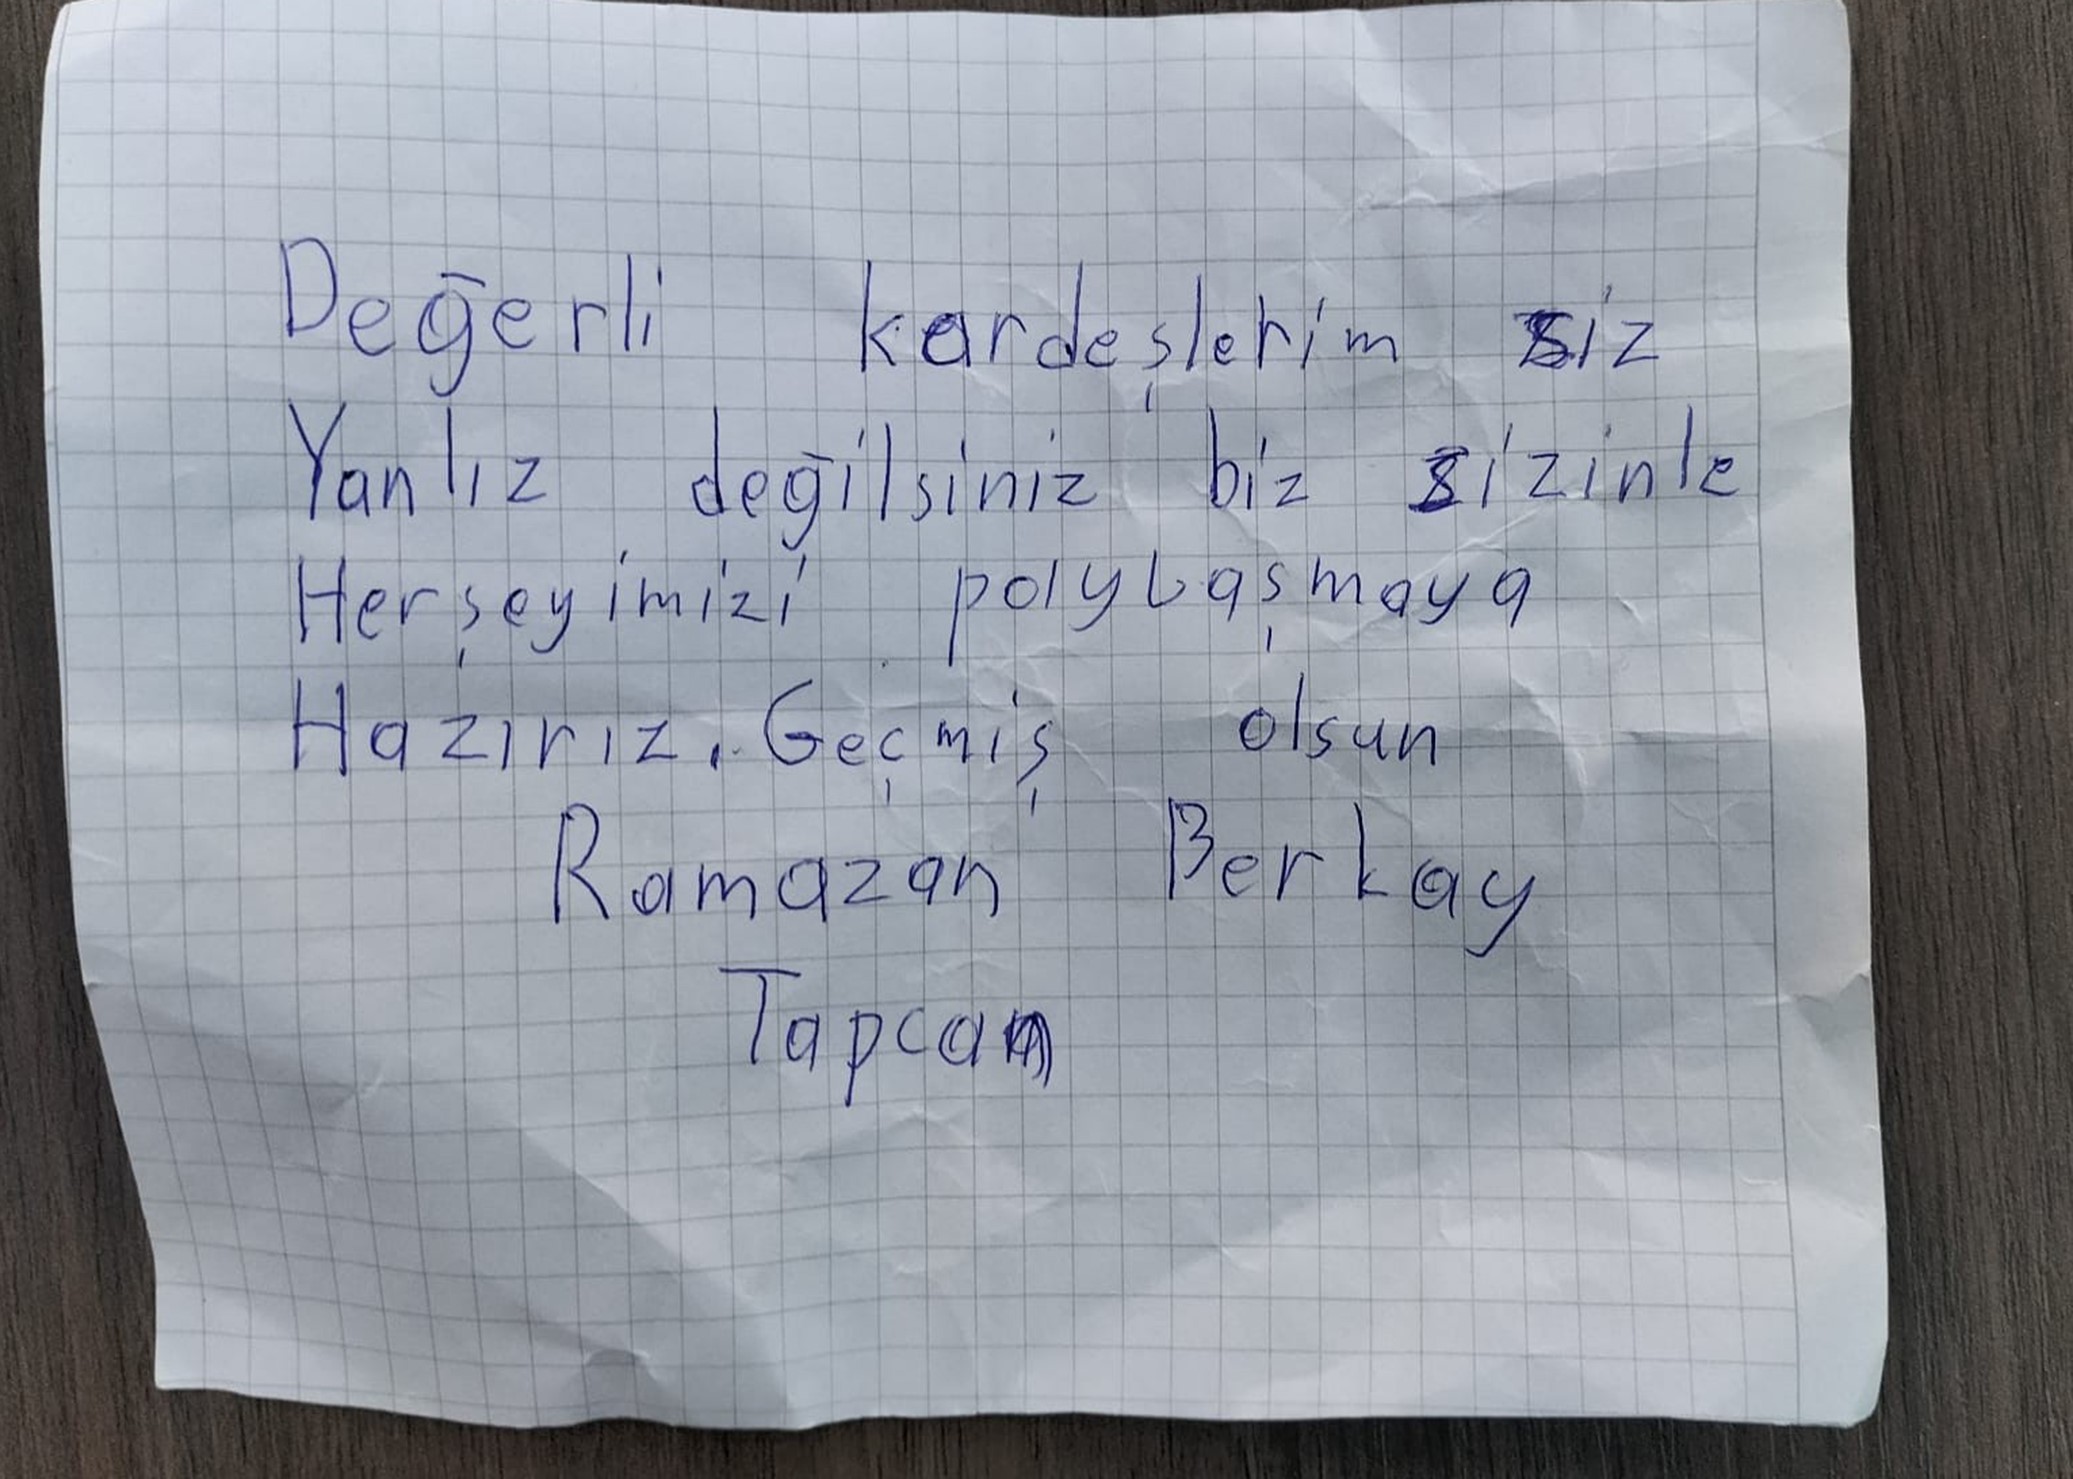 Değerli kardeşlerim siz
Yanlız değilsiniz biz sizinle
Herşeyimizi polylaşmaya
Hazırız. Geçmiş olsun
Ramazan Berkay
Tapcan